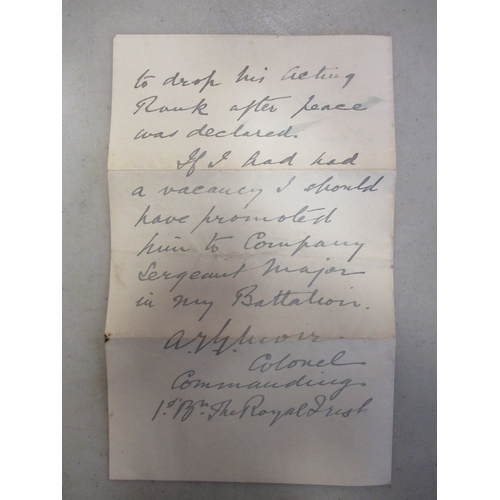 to drop his acting
Rank after peace
was declared.
If I had had
a vacancy I should
have promoted
him to Company
Sergeant Major
in my Battalion.
Colonel
Commanding
1st Bn. The Royal Irish